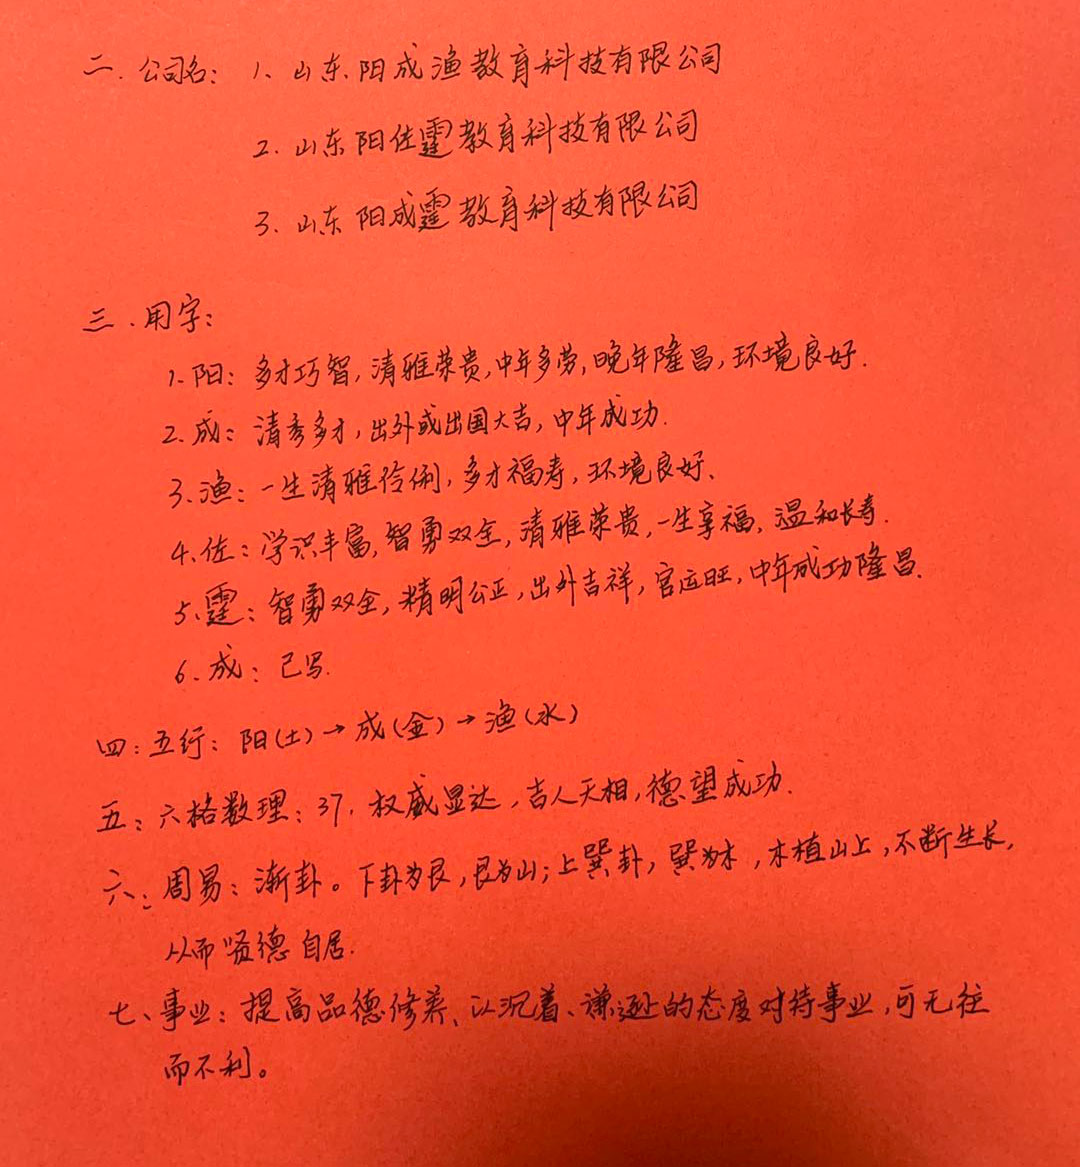 二. 公司名: 1、山东阳成渔教育科技有限公司
2. 山东阳佐霆教育科技有限公司
3. 山东阳成霆教育科技有限公司
三. 用字:
1. 阳: 多才巧智, 清雅荣贵, 中年多劳, 晚年隆昌, 环境良好.
2. 成: 清秀多才, 出外或出国大吉, 中年成功.
3. 渔: 一生清雅伶俐, 多才福寿, 环境良好、
4、佐: 学识丰富, 智勇双全, 清雅荣贵, 一生享福, 温和长寿.
5. 霆: 智勇双全, 精明公正, 出外吉祥, 官运旺, 中年成功隆昌.
6. 成: 已写.
四: 五行: 阳(土)→成(金)→渔(水)
五: 六格数理: 37. 权威显达, 吉人天相, 德望成功.
六: 周易: 渐卦。下卦为艮, 艮为山; 上巽卦, 巽为木, 木植山上, 不断生长,
从而贤德自居.
七、事业: 提高品德修养、以沉着、谦逊的态度对待事业, 可无往
而不利。